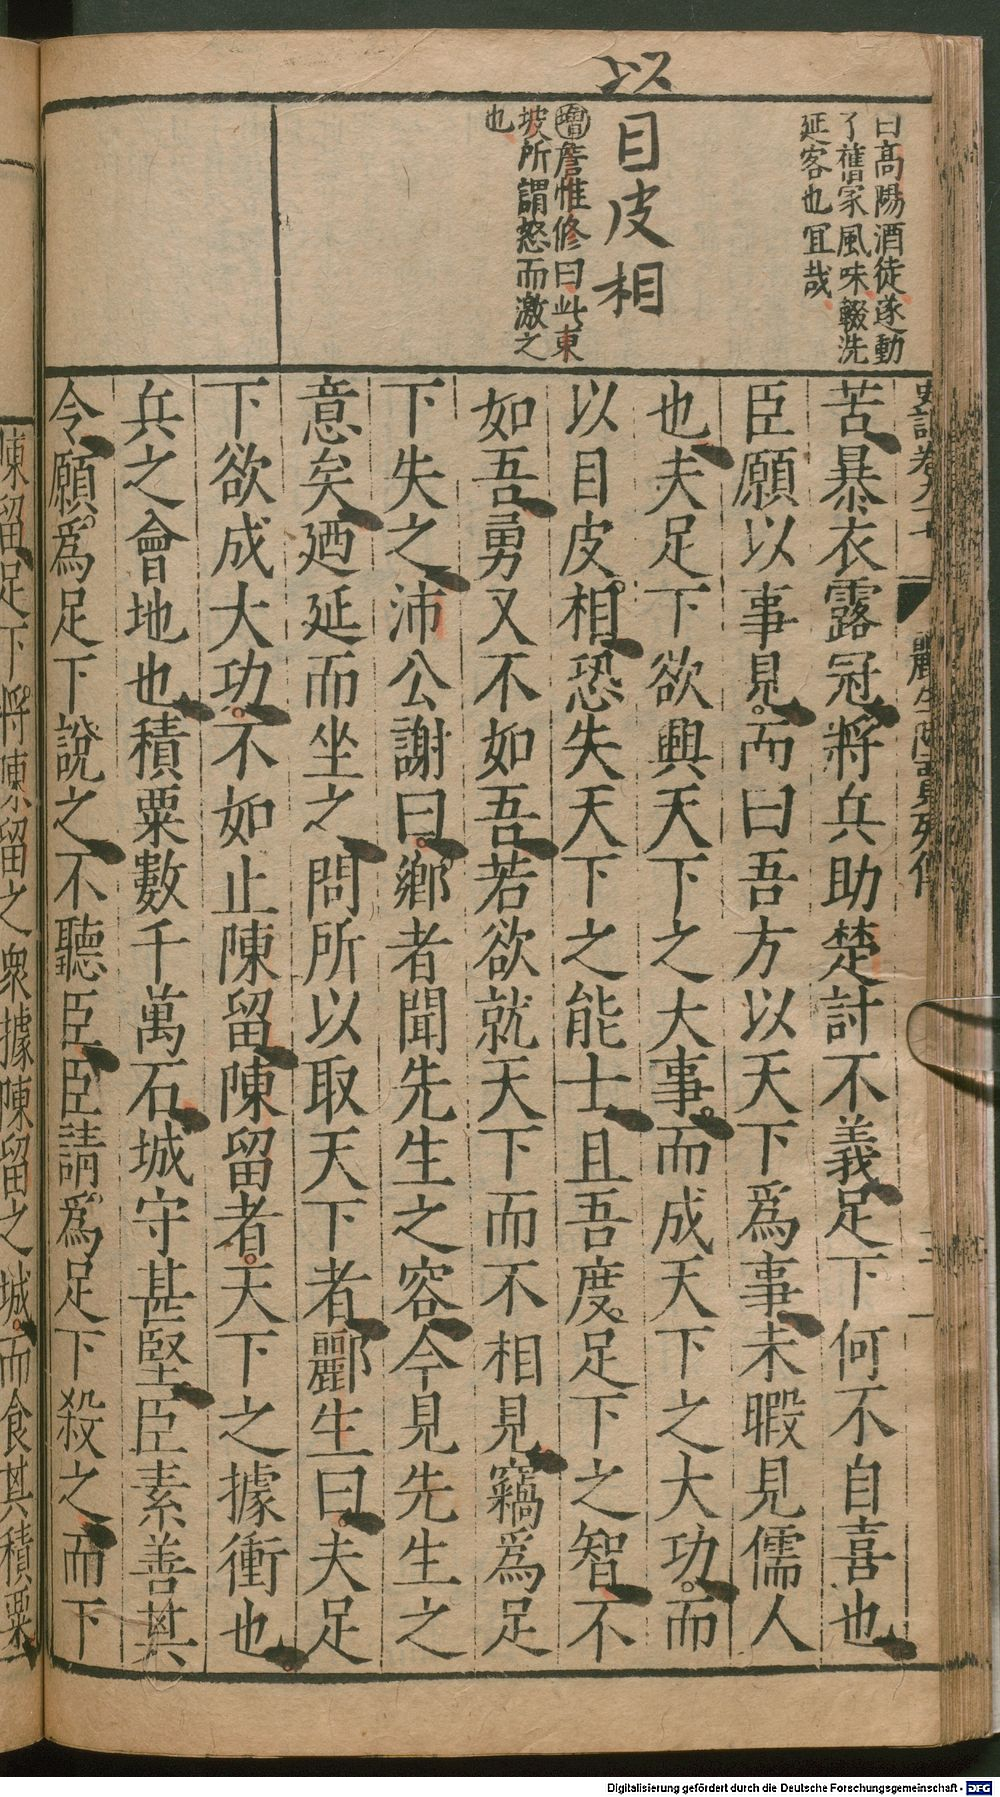 曰高陽酒徒遂動
了舊家風味輟洗
延客也冝哉
以
目皮相
增詹惟修曰此東
坡所謂怒而激之
也
苦暴衣露冠將兵助楚討不義足下何不自喜也
臣願以事見而曰吾方以天下爲事未暇見儒人
也夫足下欲興天下之大事而成天下之大功而
以目皮相恐失天下之能士且吾度足下之智不
如吾勇又不如吾若欲就天下而不相見竊爲足
下失之沛公謝曰鄉者聞先生之容今見先生之
意矣廼延而坐之問所以取天下者酈生曰夫足
下欲成大功不如止陳留陳留者天下之據衝也
兵之會地也積粟數千萬石城守甚堅臣素善其
令願爲足下說之不聽臣臣請爲足下殺之而下
陳留足下將陳留之衆據陳留之城而食其積粟
Digitalisierung gefördert durch die Deutsche Forschungsgemeinschaft - DFG